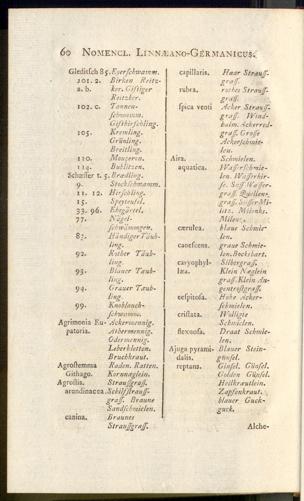 60 NOMENCL. LINNÆANO-GERMANICUS.
Gleditsch 85. Eyerschwamm.
101. 2. Birken Reitz-
a. b. ker. Giftiger
Reitzker.
102. c. Tannen-
schwamm.
Gifthirschling.
105. Kremling.
Gründling.
Breitling.
110.
114. Bublitzen.
Schæffer t. 5. Brædling.
9. Stockschwamm.
11. 12. Hirschling.
15. Speyteufel.
33. 96. Ehegürtel.
77. Nägel-
schwämmgen.
87. Händiger Täub-
ling.
92. Rother Täub-
ling.
93. Blauer Täub-
ling.
94. Grauer Täub-
ling.
99. Knoblauch-
schwamm.
Agrimonia Eu- Ackermennig.
patoria. Adbermennig.
Odermennig.
Leberkletten.
Bruchkraut.
Agrostemma Raden. Ratten.
Githago. Kornnæglein.
Agrostis. Straußgraß.
arundinacea. Schilfstrauß-
graß. Braune
Sandschmielen.
canina. Braunes
Straußgraß.
capillaris. Haar Strauß-
graß.
rubra. rothes Strauß-
graß.
spica venti Acker Strauß-
graß. Wind-
halm. Ackerried-
graß. Große
Ackerschmie-
len.
Aira. Schmielen.
aquatica. Wasserschmie-
len. Wasserhir-
se. Süß Wasser-
graß. Quellen-
graß. Süßer Mi-
litz. Milenks.
Milenz.
cærulea. blaue Schmie-
len.
canescens. graue Schmie-
len. Bocksbart.
caryophyl- Silbergraß.
læa. Klein Næglein
graß. Klein Au-
gentrostgraß.
cespitosa. Hohe Acker-
schmielen.
cristata. Wollige
Schmielen.
flexuosa. Drat Schmie-
len.
Ajuga pyrami- Blauer Stein-
dalis. günsel.
reptans. Ginsel. Günsel.
Golden Günsel.
Heilkræutlein.
Zapfenkraut.
blauer Guck-
guck.
Alche-